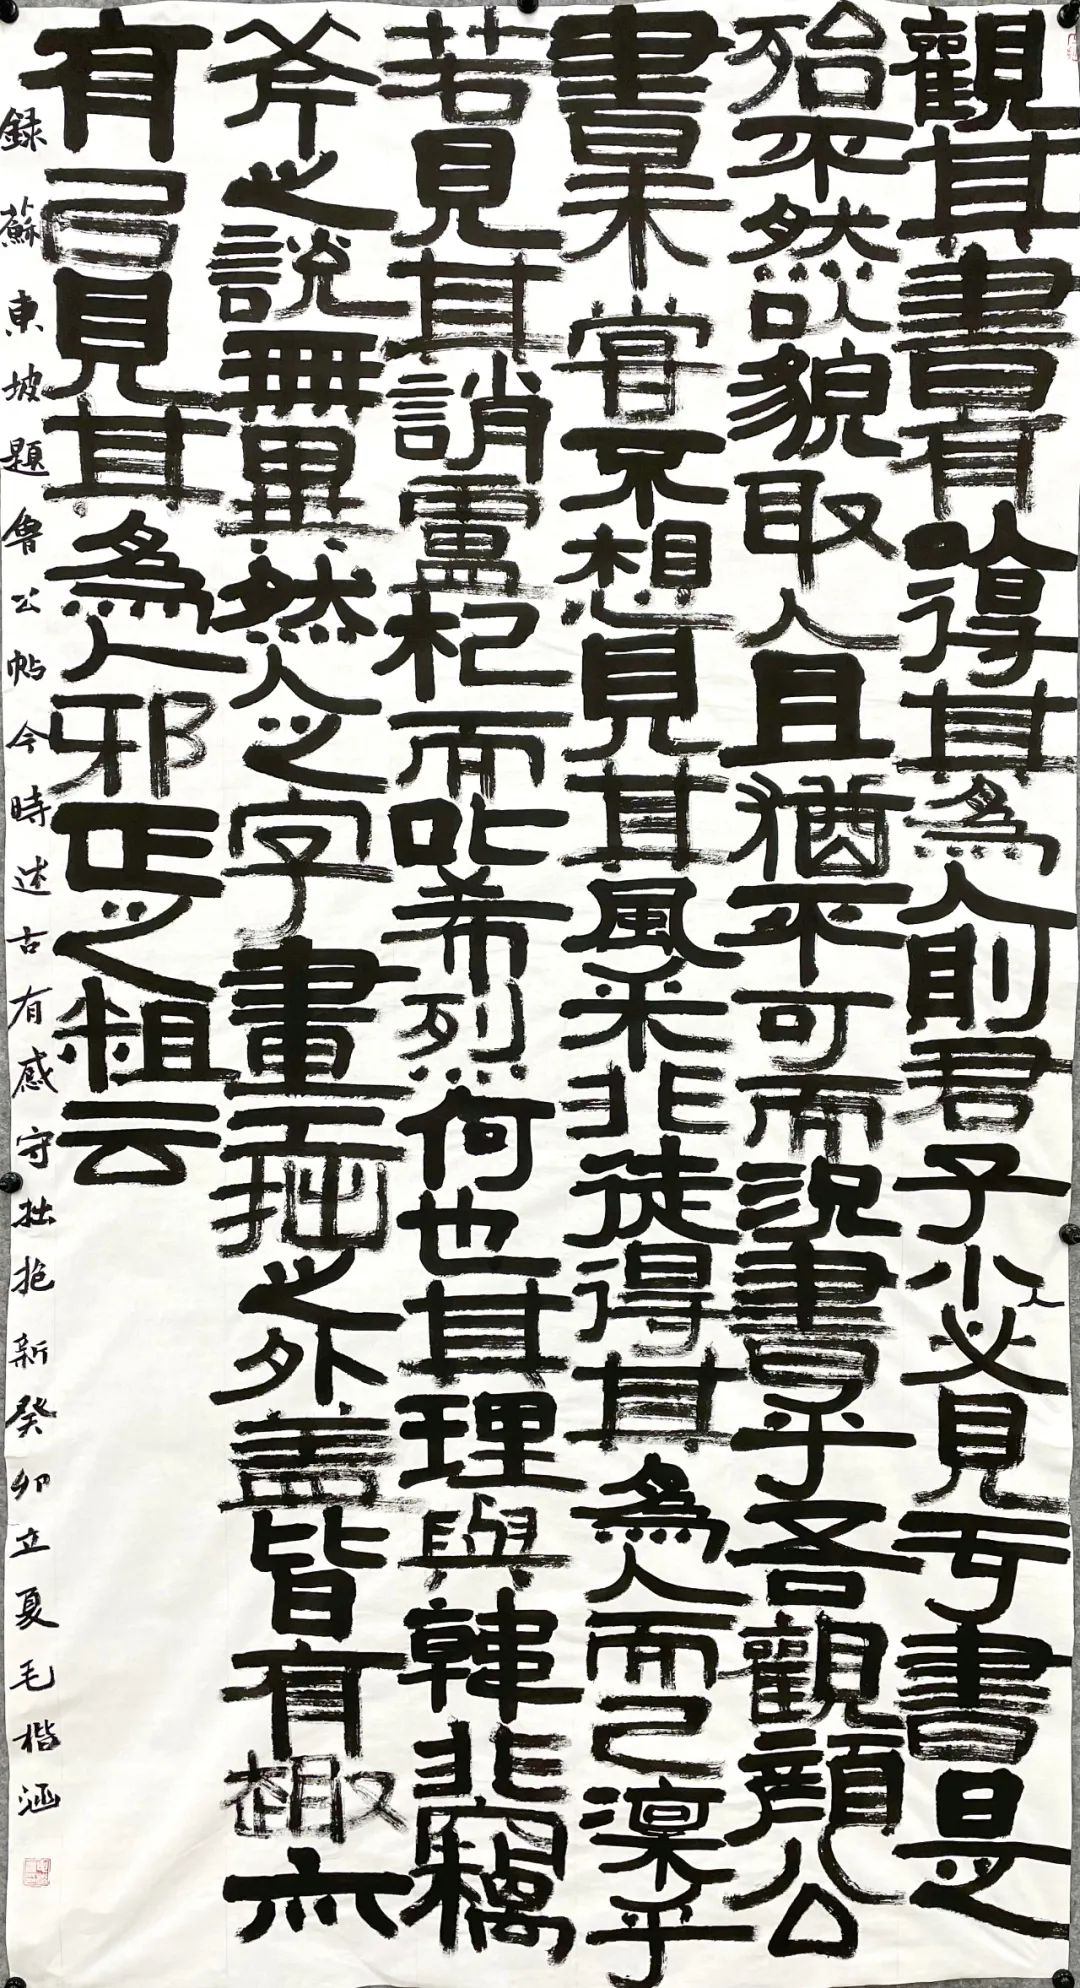 觀其書有以得其為人則君子小人必見于書是
殆不然以貌取人且猶不可而況書乎吾觀顏公
書未嘗不想見其風采非徒得其為人而已凜乎
若見其誚盧杞而叱希烈何也其理與韓非竊
斧之說無異然人之字畫工拙之外盖皆有趣亦
有以見其為人邪正之粗云
録蘇東坡題魯公帖今時述古有感守拙抱新癸卯立夏毛楷涵